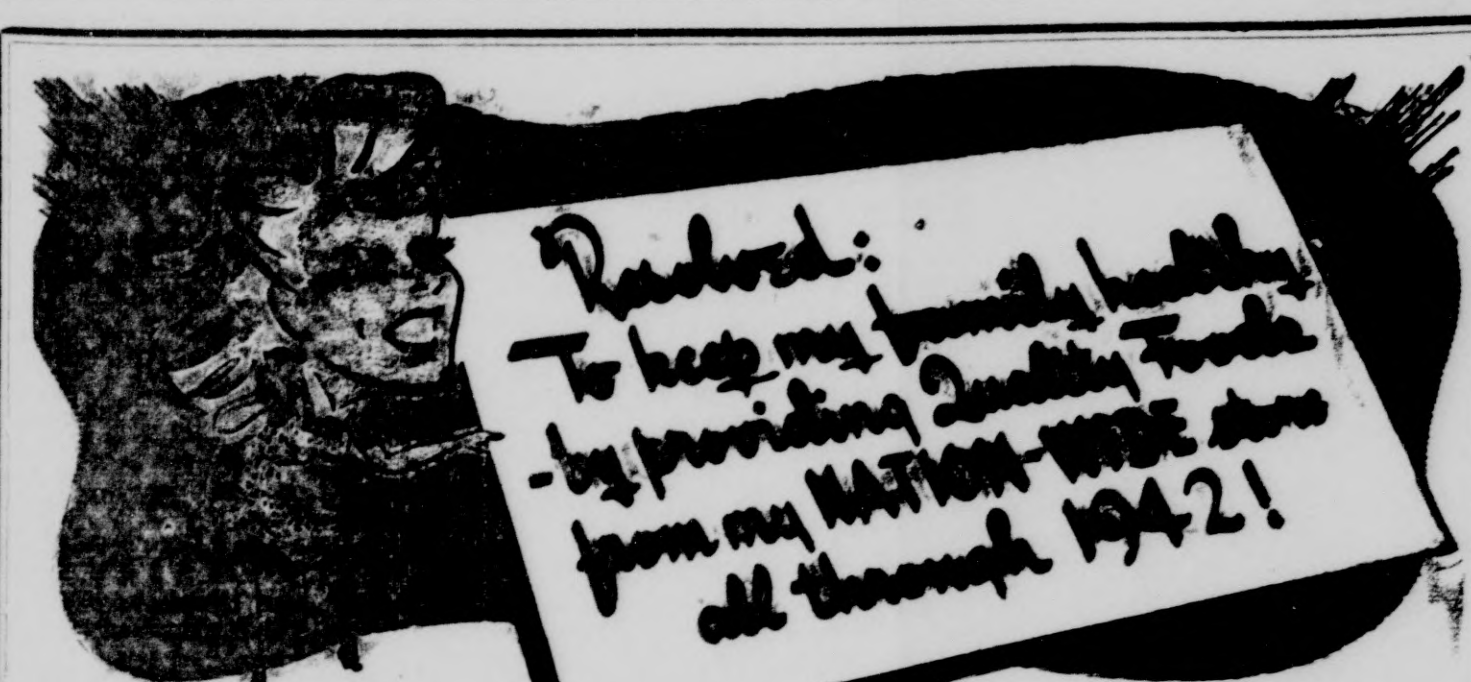 Resolved:
To keep my family healthy
- by providing Quality Foods
from my NATION-WIDE store
all through 1942!